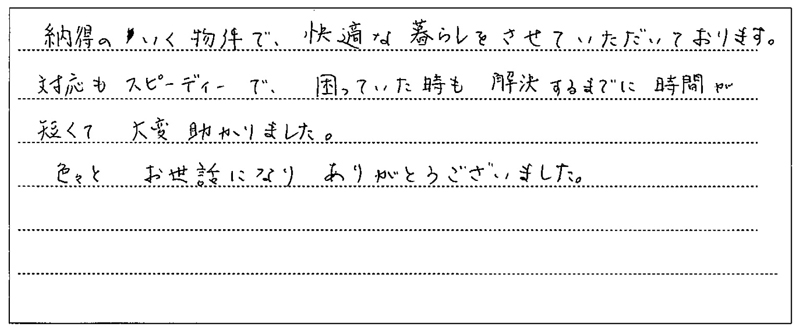 納得のいく物件で、快適な暮らしをさせていただいております。
対応もスピーディーで、困っていた時も解決するまでに時間が
短くて大変助かりました。
色々とお世話になりありがとうございました。